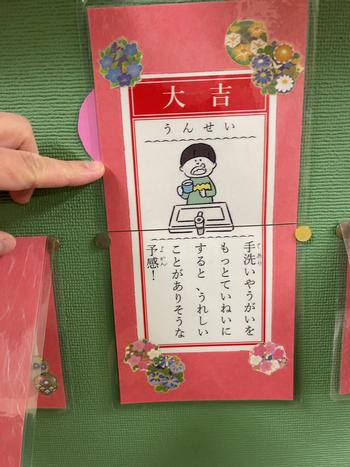 大吉
うんせい
手洗いやうがいを
もっとていねいに
すると、うれしい
ことがありそうな
予感！